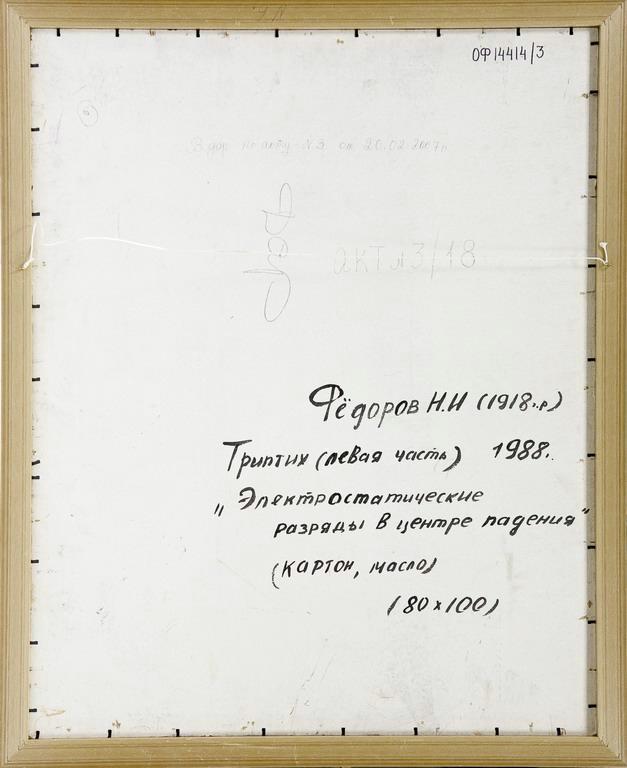 ОФ14414/3
В дар по акту N3 от 20.02.2007г.
Фёр
акт л3/18
Фёдоров Н.И (1918г.р)
Триптих (левая часть) 1988г.
"Электростатические
разряды в центре падения"
(картон, масло)
(80х100)